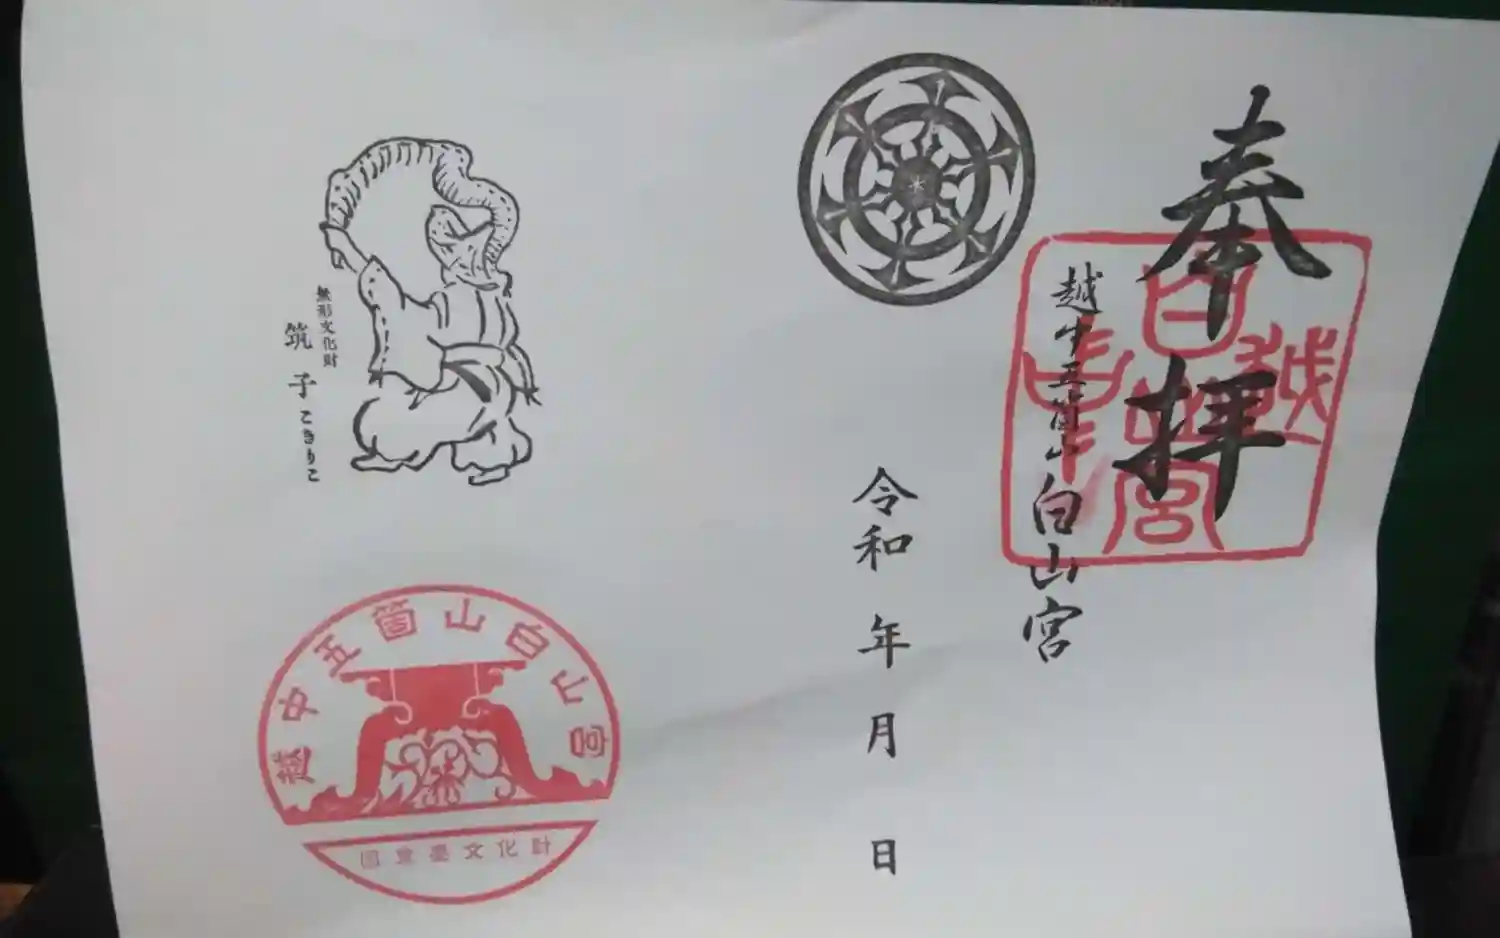 奉拝
越中五箇山 白山宮
越中
白山宮
令和 年 月 日
無形文化財
筑子 こきりこ
越中五箇山白山宮
国重要文化財